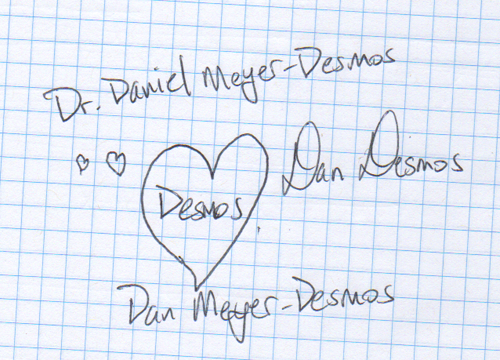 Dr. Daniel Meyer-Desmos
Dan Desmos
Desmos
Dan Meyer-Desmos